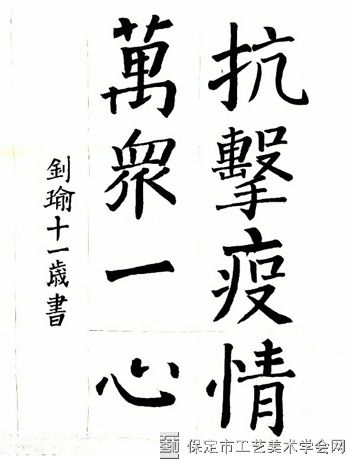 抗擊疫情
萬衆一心
釗瑜十一歲書
保定市工艺美术学会网